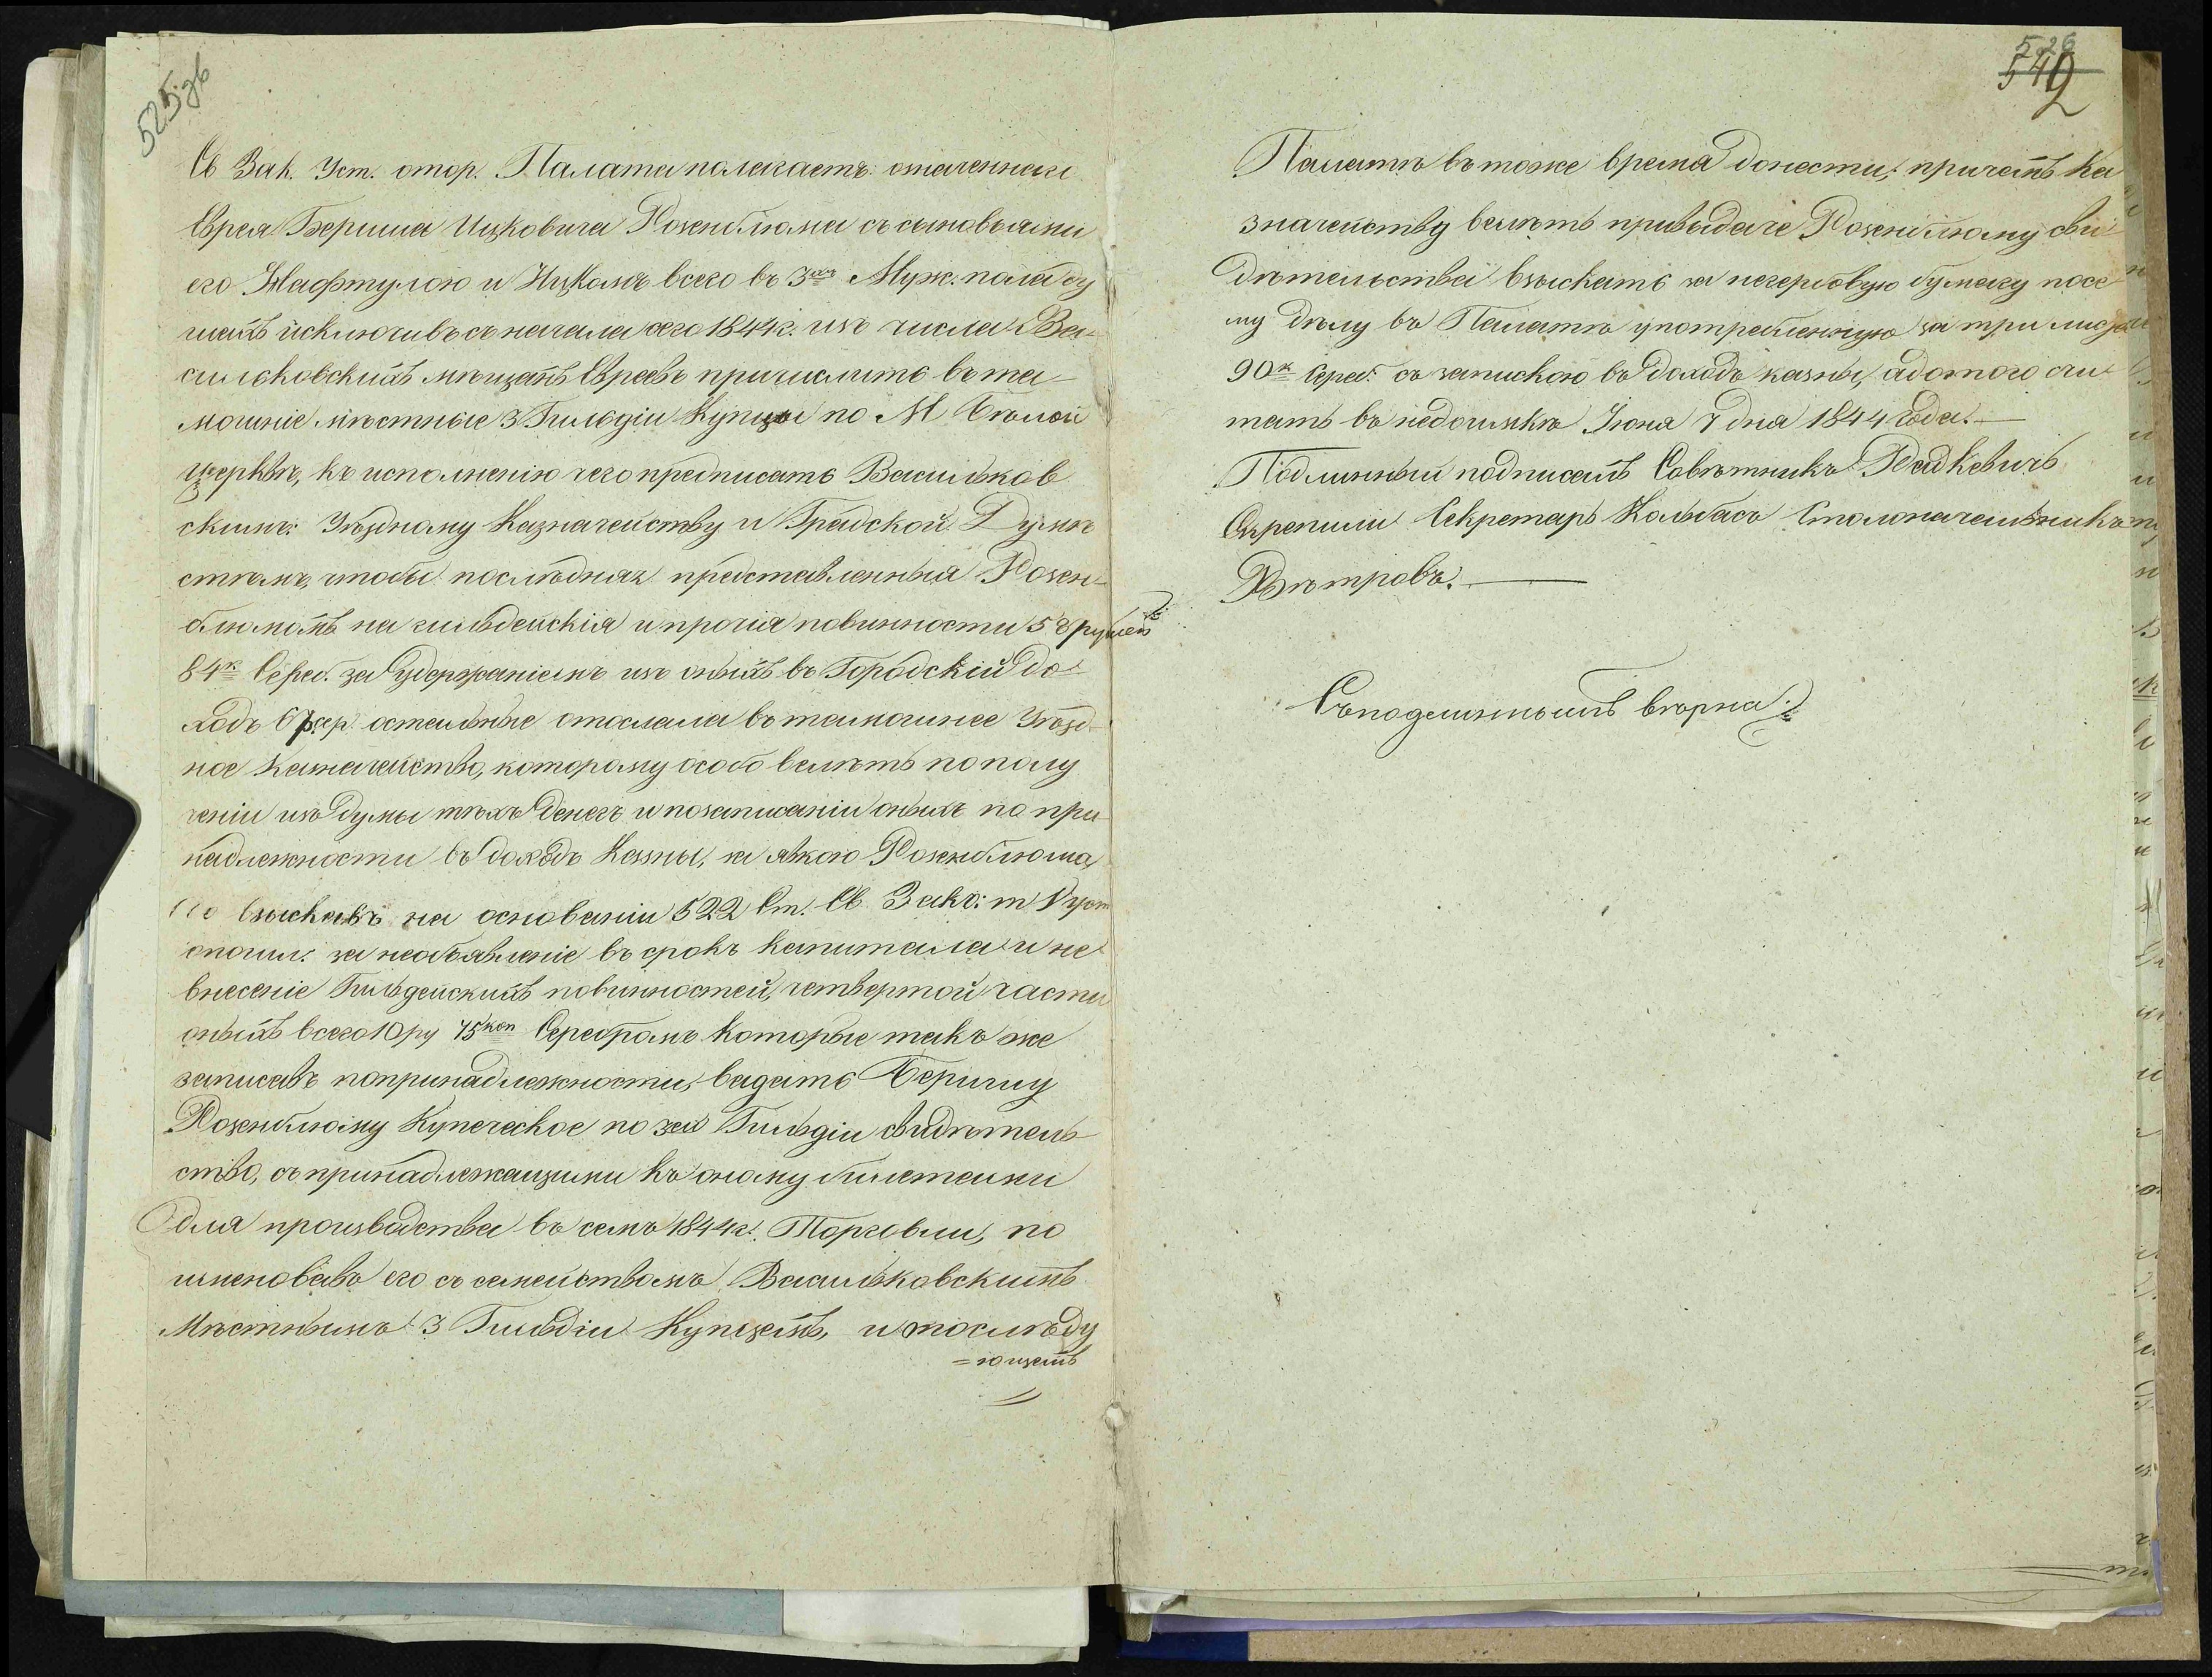 525 зв
Св Зак. Уст. отор. Палата полагаетъ: означеннаго
Еврея Бериша Ицковича Розенблюма съ сыновьями
его Нафтулою и Ицкомъ всего въ 3хъ Муж. пола ду
шахъ исключивъ съ начала сего 1844 г. изъ числа Ва-
сильковскихъ мѣщанъ Евреевъ причислить въ та-
мошніе мѣстные 3 Гильдіи Купцы по М Бѣлой
церквѣ, къ исполненію чего предписать Васильков
скимъ: Уѣздному Казначейству и Градской Думѣ
съ тѣмъ, чтобы послѣдняя представленныя Розен-
блюмомъ на гильдейскія и прочія повинности 58 рублей
84к Сереб. за удержаніемъ изъ оныхъ въ Городскій до
ходъ 6 р. сер. остальные отослала въ тамошнее Уѣзд-
ное казначейство, которому особо велѣть по полу
ченіи изъ Думы тѣхъ денегъ и по записаніи оныхъ по при
надлежности въ доходъ Казны, за явкою Розенблюма,
по взыскавъ на основаніи 522 Ст. Св Зако: т V уст
о пошл. за необъявленіе въ срокъ капитала и не
внесеніе Гильдейскихъ повинностей, четвертой части
оныхъ всего 10 ру 75 коп Серебромъ которые такъ же
записавъ по принадлежности, выдать Беришу
Розенблюму Купеческое по 3ей Гильдіи свидѣтель
ство, съ принадлежащими къ оному билетами
для производства въ семъ 1844 г. Торговли, по
именовавъ его съ семействомъ Васильковскимъ
Мѣстнымъ 3 Гильдіи Купцемъ, и о послѣду
=ющемъ
526
542
Палатѣ въ тоже время донести; причемъ Ка
значейству велѣть при выдаче Розенблюму сви
дѣтельства взыскать за негербовую бумагу по се
му дѣлу въ Палатѣ употребленную за три листа
90к Сереб. съ запискою въ доходъ казны, а до того счи
тать въ недоимкѣ Іюня 7 дня 1844 года.
Подлинный подписалъ Совѣтникъ Радкевичъ
Скрепили Секретарь Кольбасъ Столоначальникъ
Дмѣтровъ.
Съ подлиннымъ вѣрна